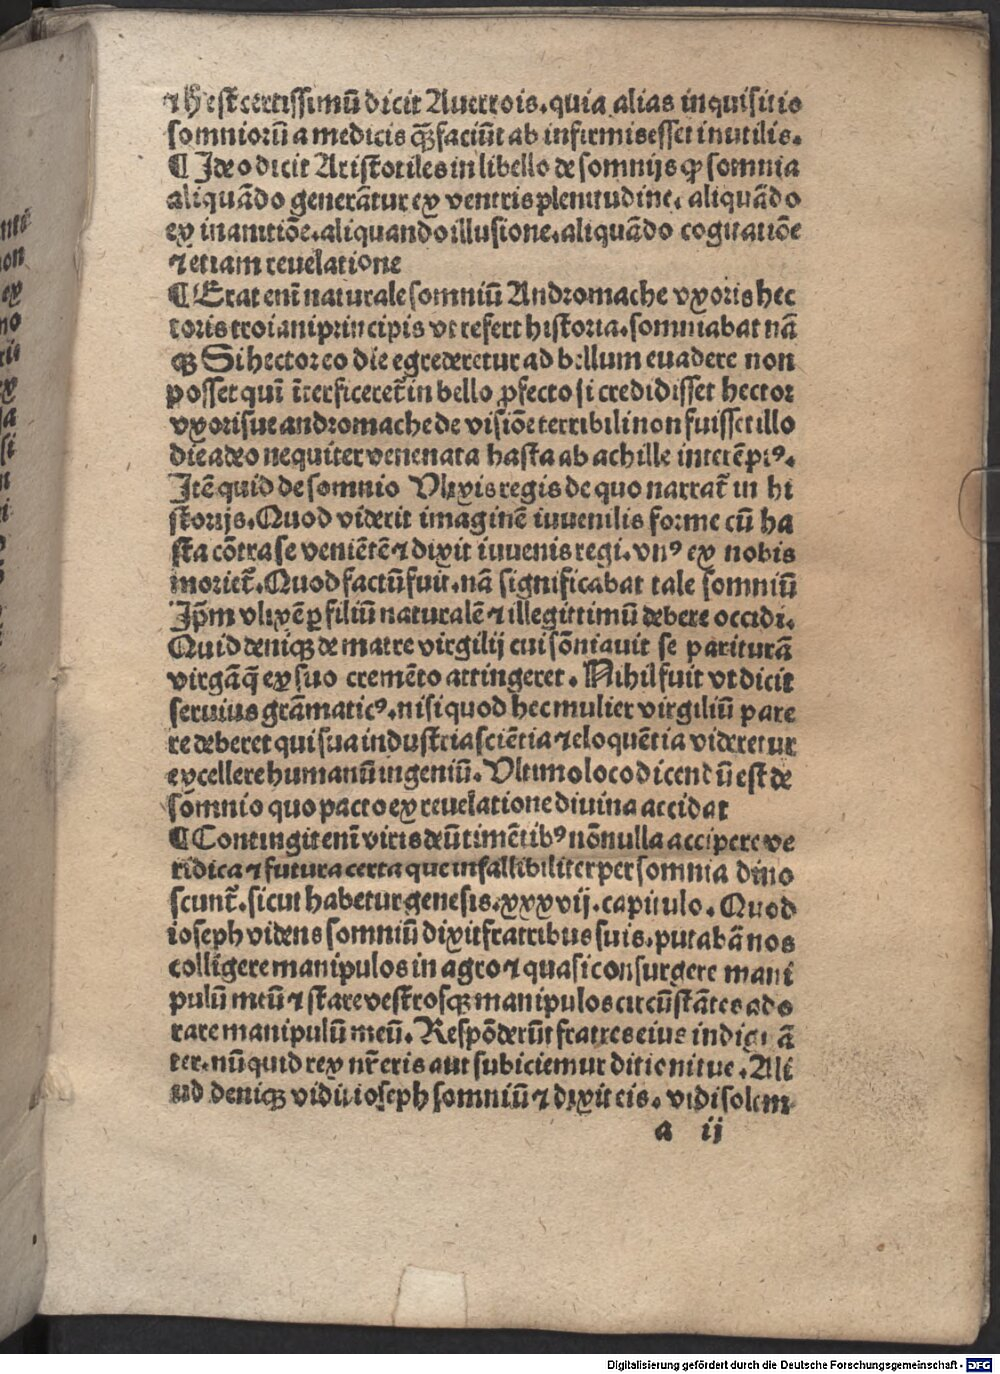 ⁊ h̄ est certissimū dicit Auerrois. quia alias inquisitio
somniorū a medicis quā faciūt ab infirmis esset inutilis.
¶ Ideo dicit Aristotiles in libello de somnijs ꝙ somnia
aliquādo generātur ex ventris plenitudine. aliquādo
ex inanitiōe. aliquando illusione. aliquādo cogitatiōe
⁊ etiam reuelatione
¶ Erat enī naturale somniū Andromache vxoris hec
toris troiani principis vt refert historia. somniabat nā
ꝙ Si hector eo die egrederetur ad bellum euadere non
posset quī īterficeret̄ in bello ꝓfecto si credidisset hector
vxori sue andromache de visiōe terribili non fuisset illo
die adeo nequiter venenata hasta ab achille interēptꝰ.
Itē quid de somnio Vlixis regis de quo narrat̄ in hi
storijs. Quod viderit imaginē iuuenilis forme cū ha
sta cōtra se veniētē ⁊ dixit iuuenis regi. vnꝰ ex nobis
moriet̄. Quod factū fuit. nā significabat tale somniū
Ip̄m vlixē ꝑ filiū naturalē ⁊ illegittimū debere occidi.
Quid deniqꝫ de matre virgilij cui sōniauit se parituram̄
virgā q̄ ex suo cremēto attingeret. Nihil fuit vt dicit
seruius grāmaticꝰ. nisi quod hec mulier virgiliū pare
re deberet qui sua industria sciētia ⁊ eloquētia videretur
excellere humanū ingeniū. Vltimo loco dicendū est de
somnio quo pacto ex reuelatione diuina accidat
¶ Contingit enī viris deū timētibꝰ nōnulla accipere ve
ridica ⁊ futura certa que infallibiliter per somnia dino
scunt̄. sicut habetur genesis. xxxvij. capitulo. Quod
ioseph videns somniū dixit fratribus suis. putabā nos
colligere manipulos in agro ⁊ quasi consurgere mani
pulū meū ⁊ stare vestrosqꝫ manipulos circūstātes ado
rare manipulū meū. Respōderūt fratres eius indignā
ter. nūquid rex nr̄ eris aut subiciemur ditioni tue. Ali
ud deniqꝫ vidit ioseph somniū ⁊ dixit eis. vidi solem
a ij
Digitalisierung gefördert durch die Deutsche Forschungsgemeinschaft - DFG